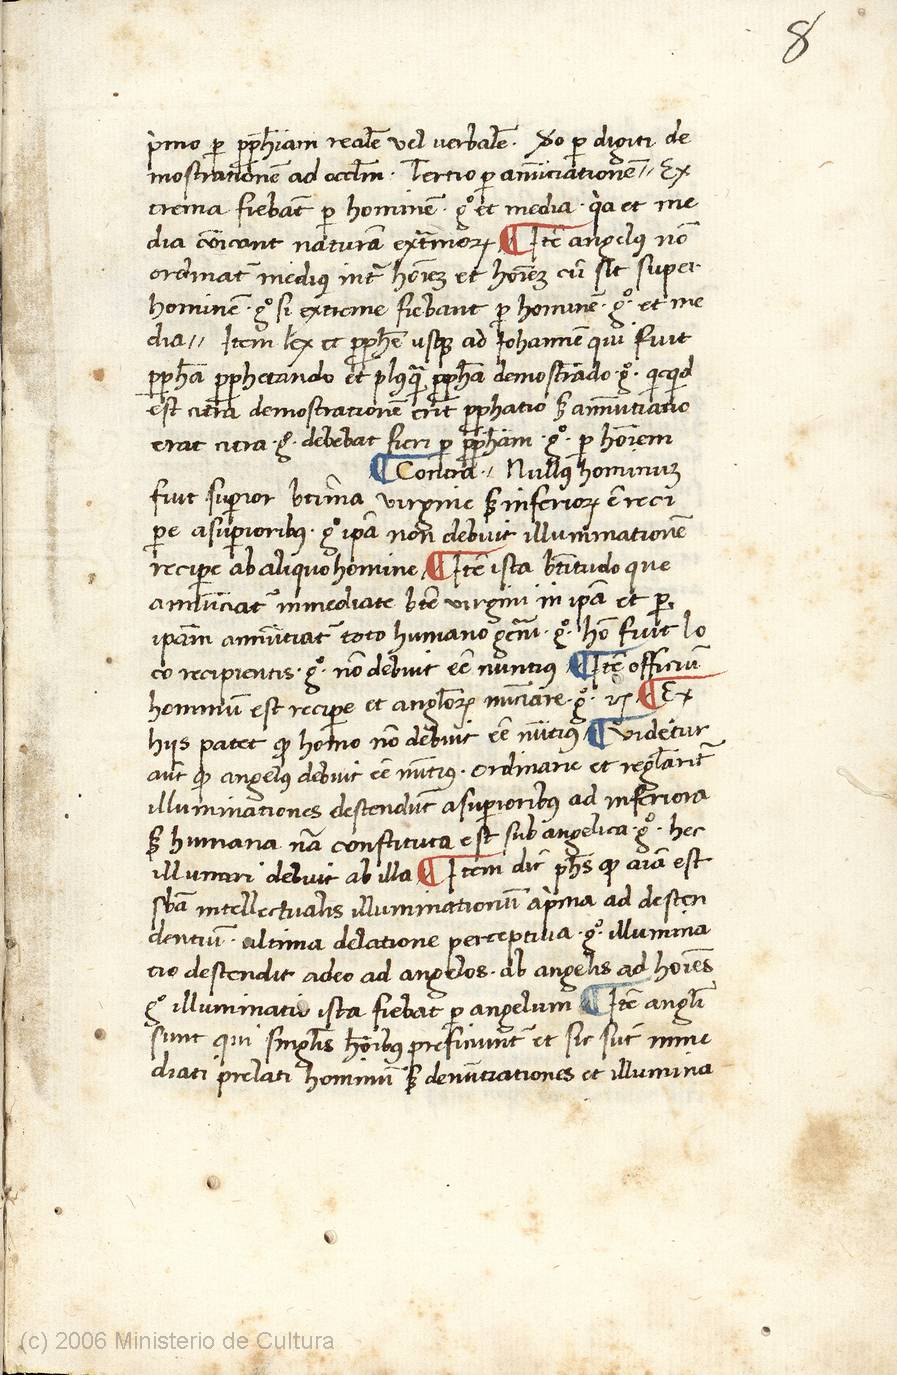 8
p̀mo ꝑ ꝓph̄iam realē vel verbalē · Xo ꝑ digiti de
mostrationē ad occl̄m · Tertio ꝑ anūciationē // Ex
trema fiebāt ꝑ hominē · gͦ et media · q̀a et me
dia cōicant naturā ext̄moꝝ ¶ Itē angelus nō
ordinat᷑ mediꝰ int᷑ hoīeꝫ et hoīeꝫ cū sīt super
hominē · gͦ si extreme fiebant ꝑ hominē · gͦ · et me
dia // Itē lex et ꝓphē usqꝫ ad Johannē qui fuit
ꝓphā ꝓphetando et plꝰqᷓ ꝓphā demostrādo · gͦ · qͥcqͥd
est citra demostrationē erit ꝓphatio ꝫ annūtiatio
erat citra · gͦ · debebat fieri ꝑ ꝓphiam · gͦ · ꝑ hoīem
¶ Contra // Nullꝰ hominuꝫ
fuit suꝑior btīma virgine ꝫ inferioꝝ ē reci
ꝑe a suꝑioribꝰ · gͦ ipā non debuit illuminationē
reciꝑe ab aliquo homine ¶ Itē ista btītudo que
anūciat᷑ inmediate btē virgini in ipā et ꝑ
ipam annūtiat᷑ toto humano gen̄i · gͦ · hō fuit lo
co recipientis · gͦ · nō debuit eē nuntius ¶ Itē officiū
hominū est reciꝑe et angl̄oꝝ nūciare · gͦ · ⁊c̄ ¶ Ex
hijs patet qꝫ homo nō debuit eē nūtius ¶ Videtur
aūt qꝫ angelus debuit eē nūtius · ordinarie et regl̄arit᷑
illuminationes descendūt a suꝑioribus ad inferiora
ꝫ humana nā constituta est sub angelica · gͦ · hec
illuīari debuit ab illa ¶ Item dic̄ ph̄s qꝫ aīa est
sbā intellectualis illuminationuꝫ a p̀ma ad descen
dentiū · ultima delatione perceptiua · gͦ · illumina
tio descendit a deo ad angelos · ab angelis ad hoīes
gͦ illuminatio ista fiebat ꝑ angelum ¶ Itē angl̄i
sunt qui singl̄is hoībꝰ preficiunt᷑ et sic sūt inme
diati prelati hominū ꝫ denūtiationes et illumina
(c) 2006 Ministerio de Cultura